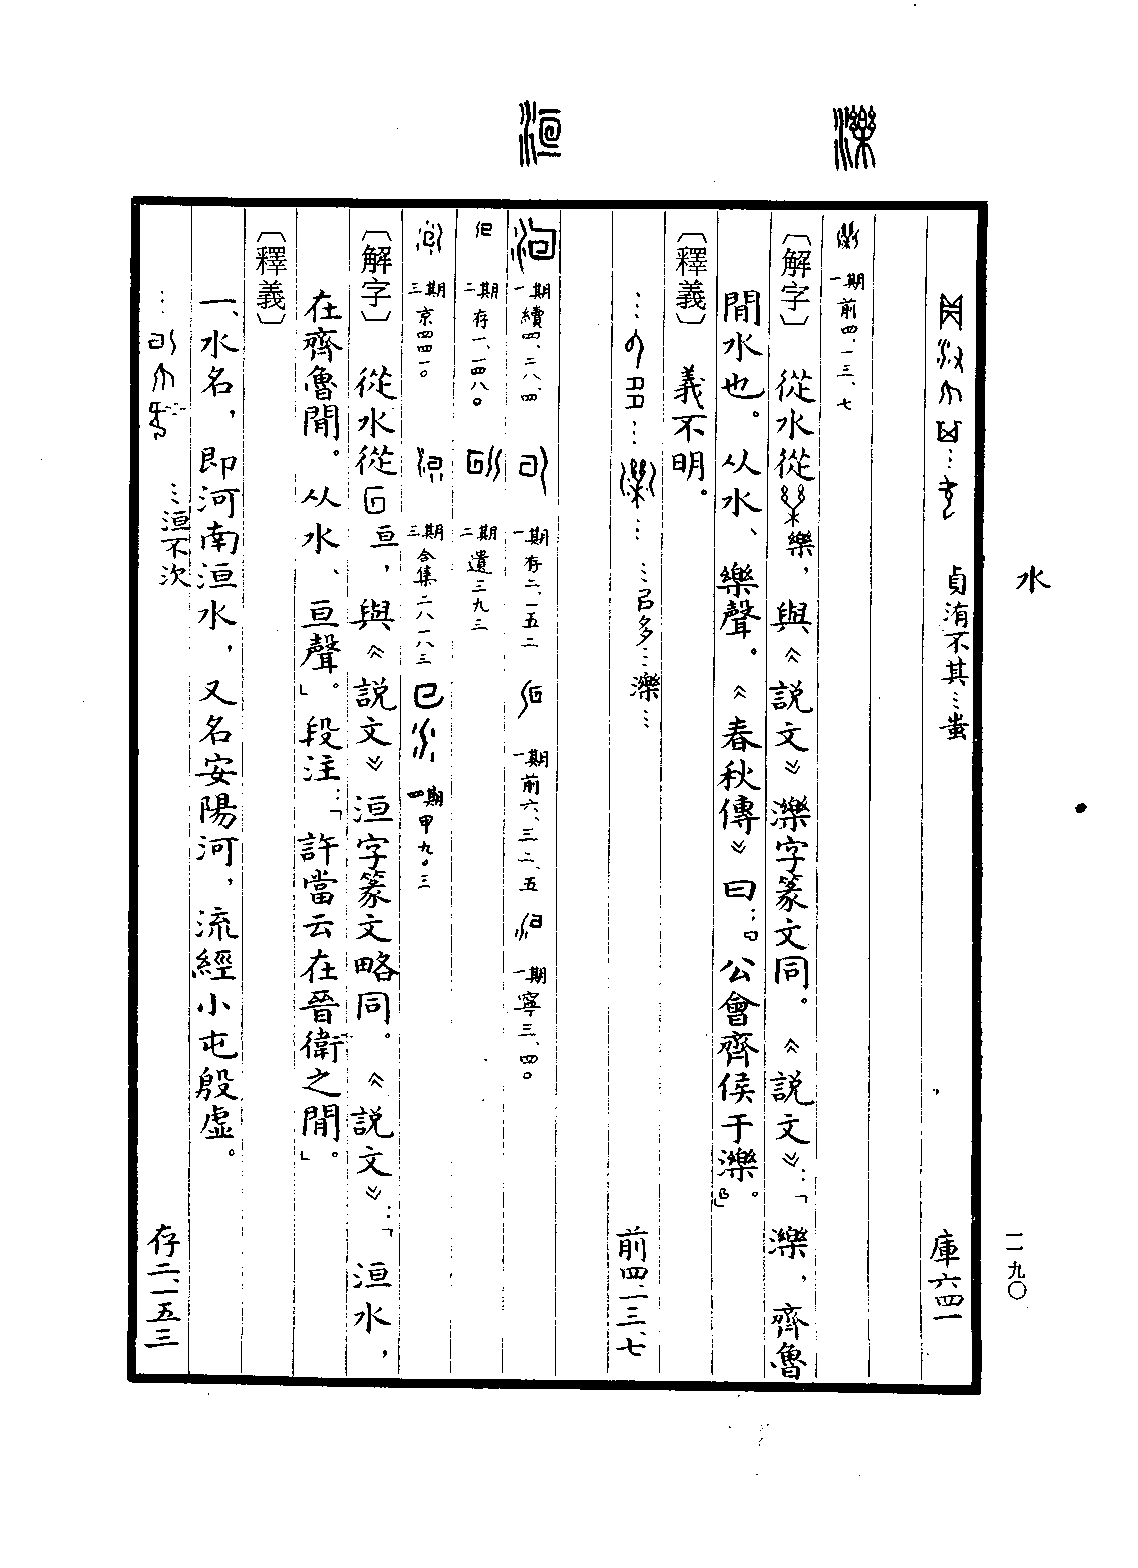 水
一一九〇
濼
洹
貞洧不其…蚩 庫六四一
一期前四、一三、七
〔解字〕 從水從樂，與《說文》濼字篆文同。《說文》：「濼，齊魯
間水也。从水、樂聲。《春秋傳》曰：『公會齊侯于濼。』」
〔釋義〕 義不明。
…多…濼… 前四、一三、七
一期續四、二八、四 一期存二、一五二 一期前六、三二、五 一期寧三、四〇
二期存一、一四八〇 二期遺三九三
三期京四四一〇 三期合集二八一八三 四期甲九〇三
〔解字〕 從水從亘，與《說文》洹字篆文略同。《說文》：「洹水，
在齊魯間。从水、亘聲」。段注：「許當云在晉衛之間」。
〔釋義〕
一、水名，即河南洹水，又名安陽河，流經小屯殷虛。
…洹不次 存二、一五三